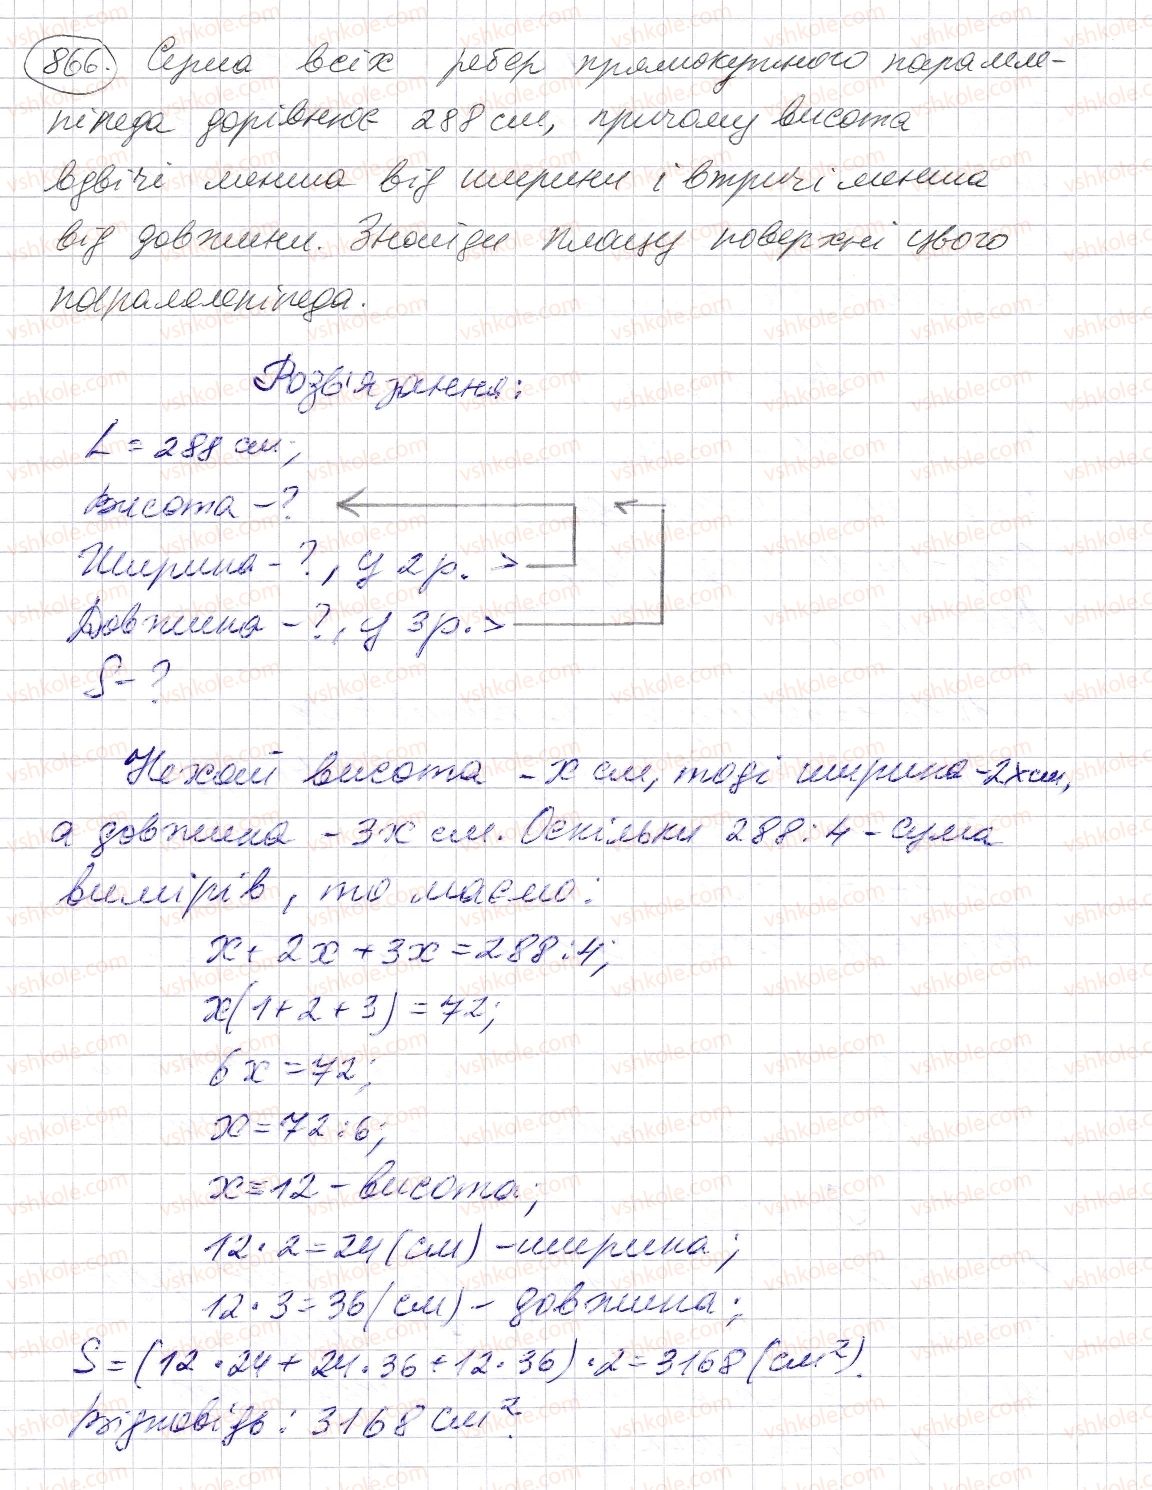 866. Сума всіх ребер прямокутного паралеле-
піпеда дорівнює 288 см, причому висота
вдвічі менша від ширини і втричі менша
від довжини. Знайди площу поверхні цього
паралелепіпеда.
Розв'язання:
L = 288 см;
Висота - ?
Ширина - ?, у 2 р. >
Довжина - ?, у 3 р. >
S - ?
Нехай висота - x см, тоді ширина - 2x см,
а довжина - 3x см. Оскільки 288 : 4 - сума
вимірів, то маємо:
x + 2x + 3x = 288 : 4;
x(1 + 2 + 3) = 72;
6x = 72;
x = 72 : 6;
x = 12 - висота;
12 · 2 = 24 (см) - ширина;
12 · 3 = 36 (см) - довжина;
S = (12 · 24 + 24 · 36 + 12 · 36) · 2 = 3168 (см²).
Відповідь: 3168 см².